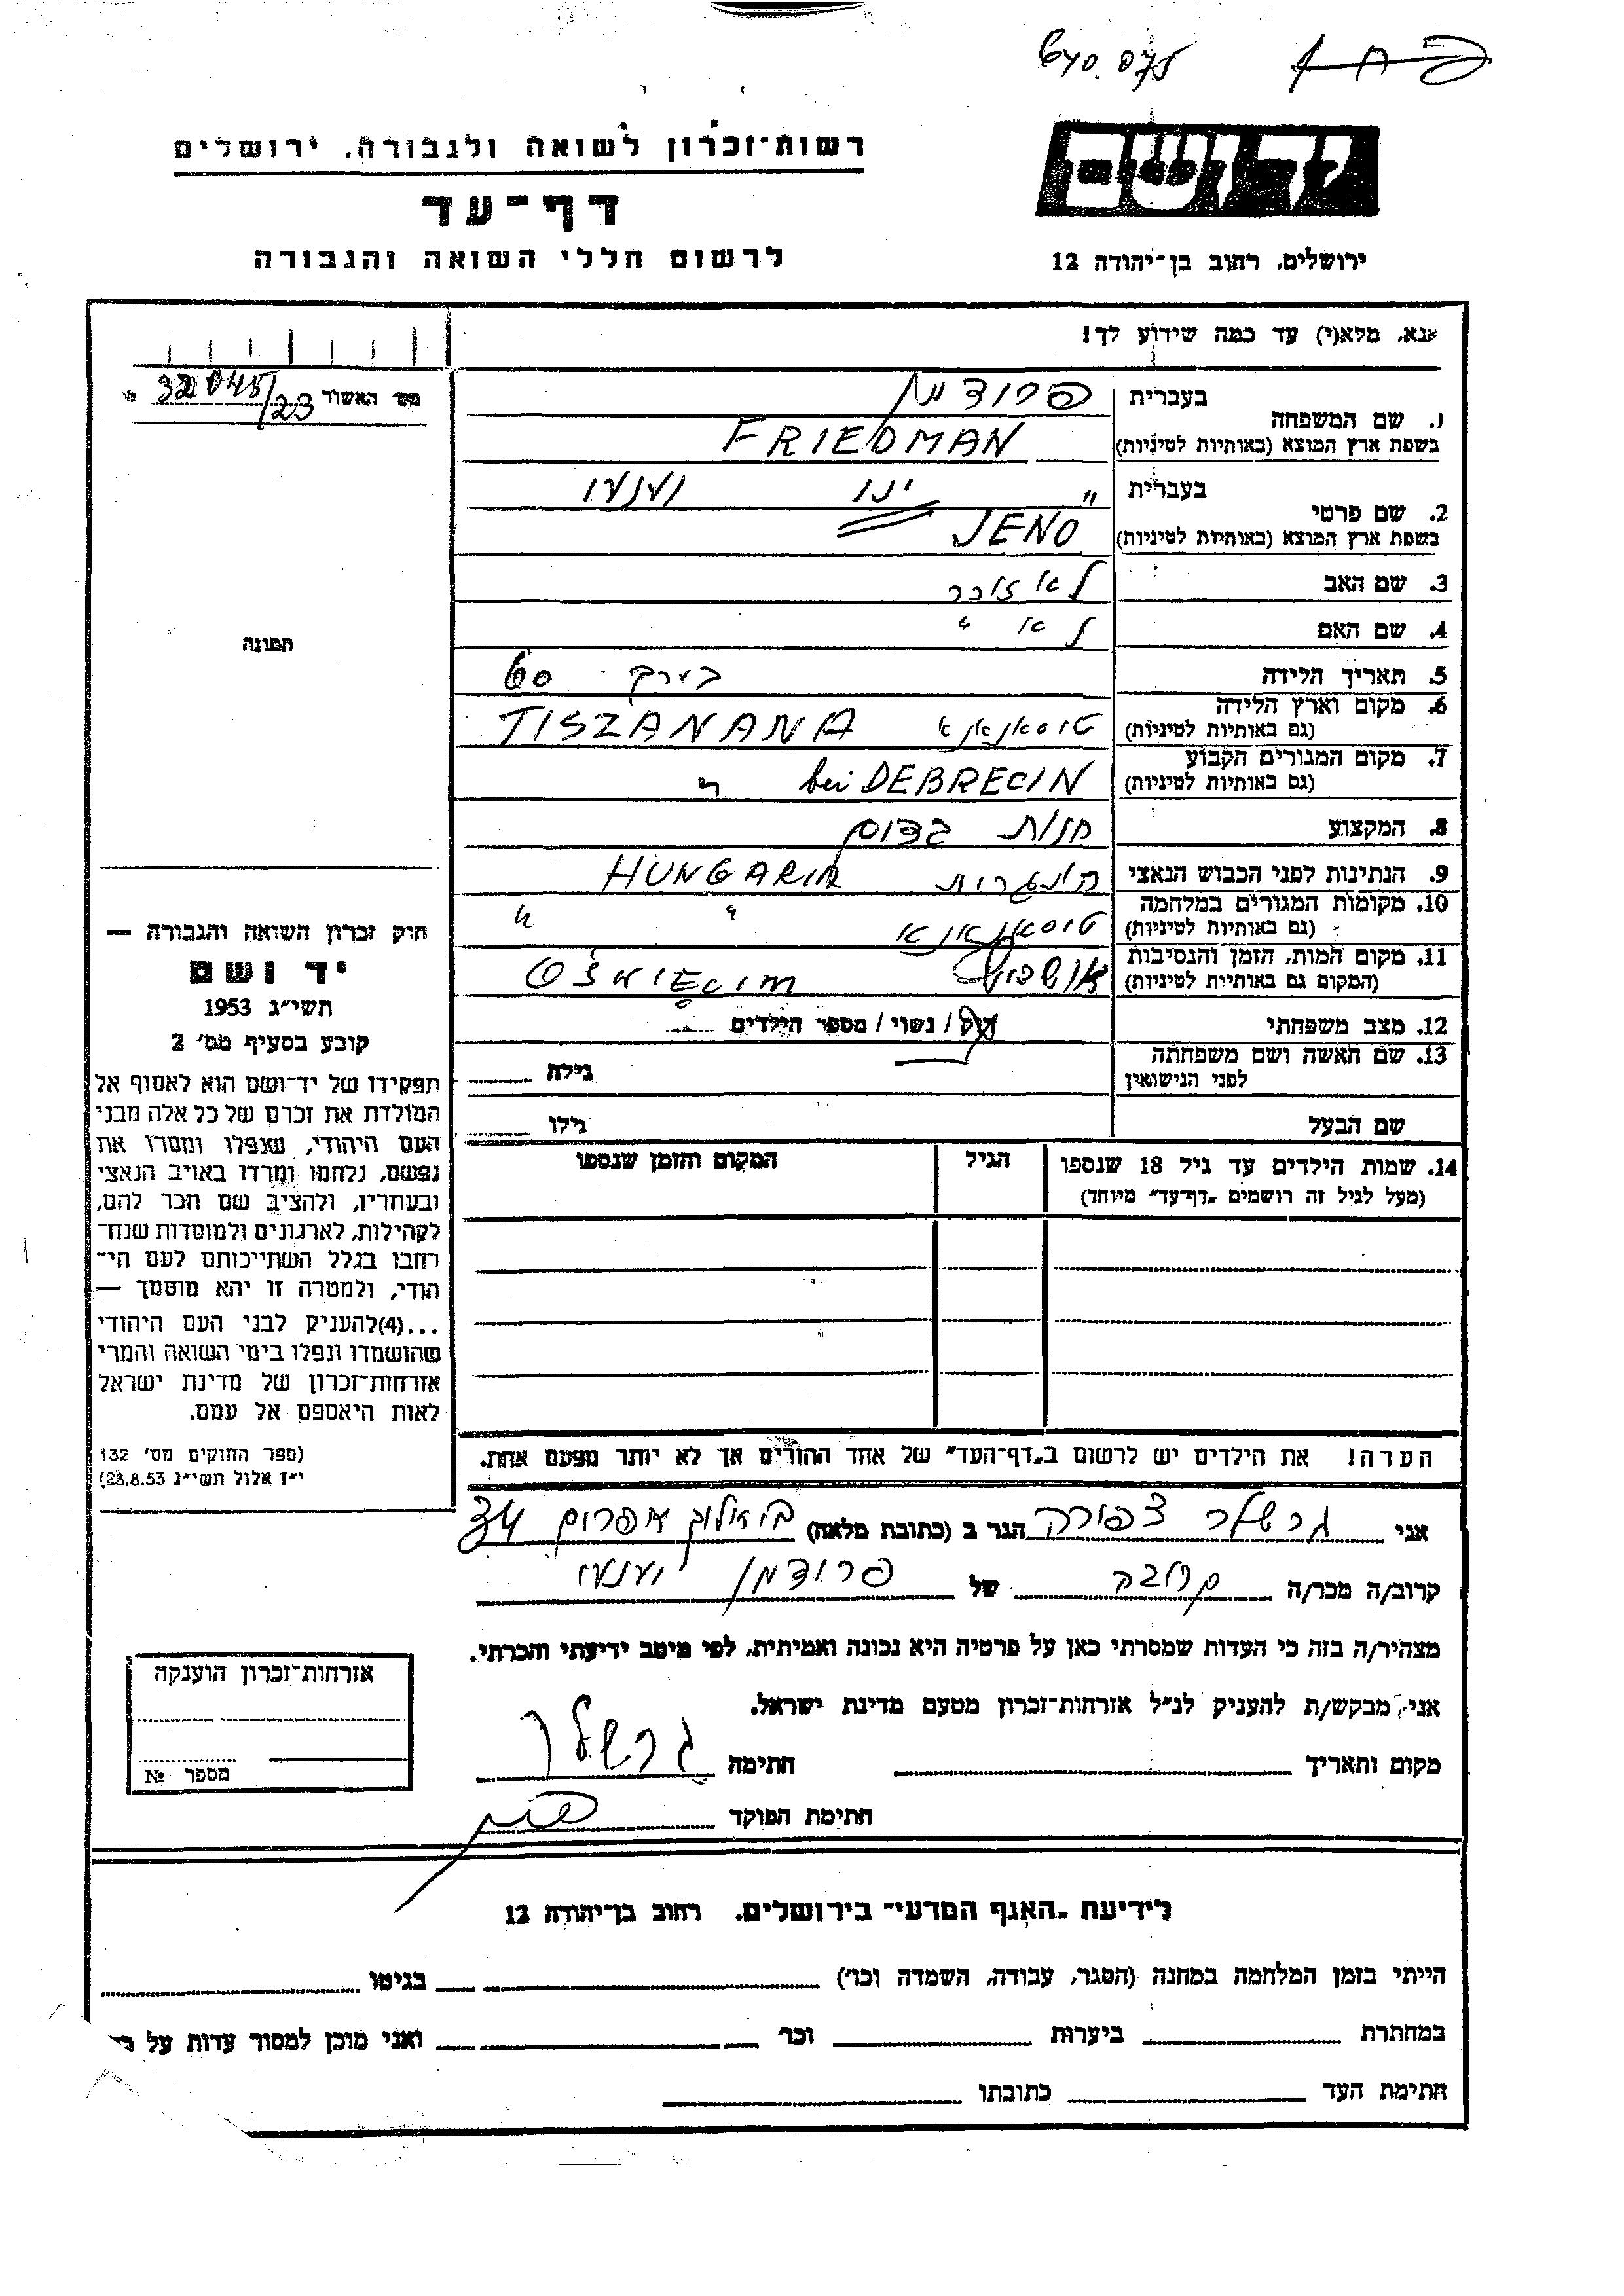 640.075
רשות־זכרון לשואה ולגבורה, ירושלים
דף־עד
לרשום חללי השואה והגבורה
יד ושם
ירושלים, רחוב בן־יהודה 12
אנא, מלא(י) עד כמה שידוע לך!
מס׳ האשור 32045/23
תמונה
1. שם המשפחה
בעברית פרידמן
בשפת ארץ המוצא (באותיות לטיניות) FRIEDMAN
2. שם פרטי
בעברית " ינו
בשפת ארץ המוצא (באותיות לטיניות) JENO
3. שם האב לא זוכר
4. שם האם לא "
5. תאריך הלידה בערך 60
6. מקום וארץ הלידה
(גם באותיות לטיניות) טיסאנאנא TISZANANA
7. מקום המגורים הקבוע
(גם באותיות לטיניות) bei DEBRECIN "
8. המקצוע חנות בדים
9. הנתינות לפני הכבוש הנאצי הונגרית HUNGARIA
10. מקומות המגורים במלחמה
(גם באותיות לטיניות) טיסאנאנא " "
11. מקום המות, הזמן והנסיבות
(המקום גם באותיות לטיניות) אושביץ OŚWIĘCIM
12. מצב משפחתי רוק / נשוי / מספר הילדים
13. שם האשה ושם משפחתה
לפני הנישואין גילה
שם הבעל גילו
14. שמות הילדים עד גיל 18 שנספו הגיל המקום והזמן שנספו
(מעל לגיל זה רושמים „דף־עד" מיוחד)
הערה! את הילדים יש לרשום ב„דף־העד" של אחד ההורים אך לא יותר מפעם אחת.
חוק זכרון השואה והגבורה —
יד ושם
תשי״ג 1953
קובע בסעיף מס׳ 2
תפקידו של יד־ושם הוא לאסוף אל
המולדת את זכרם של כל אלה מבני
העם היהודי, שנפלו ומסרו את
נפשם, נלחמו ומרדו באויב הנאצי
ובעוזריו, ולהציב שם וזכר להם,
לקהילות, לארגונים ולמוסדות שנח־
רבו בגלל השתייכותם לעם הי־
הודי, ולמטרה זו יהא מוסמך —
...(4)להעניק לבני העם היהודי
שהושמדו ונפלו בימי השואה והמרי
אזרחות־זכרון של מדינת ישראל
לאות היאספם אל עמם.
(ספר החוקים מס׳ 132
י״ז אלול תשי״ג 28.8.53)
אני גרשלר צפורה הגר ב (כתובת מלאה) אפרים 34
קרוב/ה מכר/ה קרובה של פרידמן
מצהיר/ה בזה כי העדות שמסרתי כאן על פרטיה היא נכונה ואמיתית, לפי מיטב ידיעתי והכרתי.
אני מבקש/ת להעניק לנ״ל אזרחות־זכרון מטעם מדינת ישראל.
מקום ותאריך חתימה גרשלר
חתימת הפוקד
אזרחות־זכרון הוענקה
מספר №
לידיעת „האגף המדעי" בירושלים, רחוב בן־יהודה 12
הייתי בזמן המלחמה במחנה (הסגר, עבודה, השמדה וכו׳) בגיטו
במחתרת ביערות וכו׳ ואני מוכן למסור עדות על
חתימת העד כתובתו